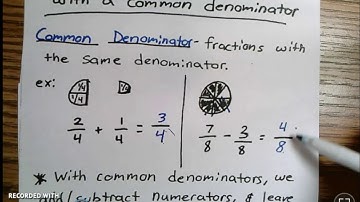 with a common denominator
Common Denominator - fractions with
the same denominator.
ex:
1/4
1/4
1/4
2/4 + 1/4 = 3/4
7/8 - 3/8 = 4/8
* With common denominators, we
add/subtract numerators, & leave
RECORDED WITH